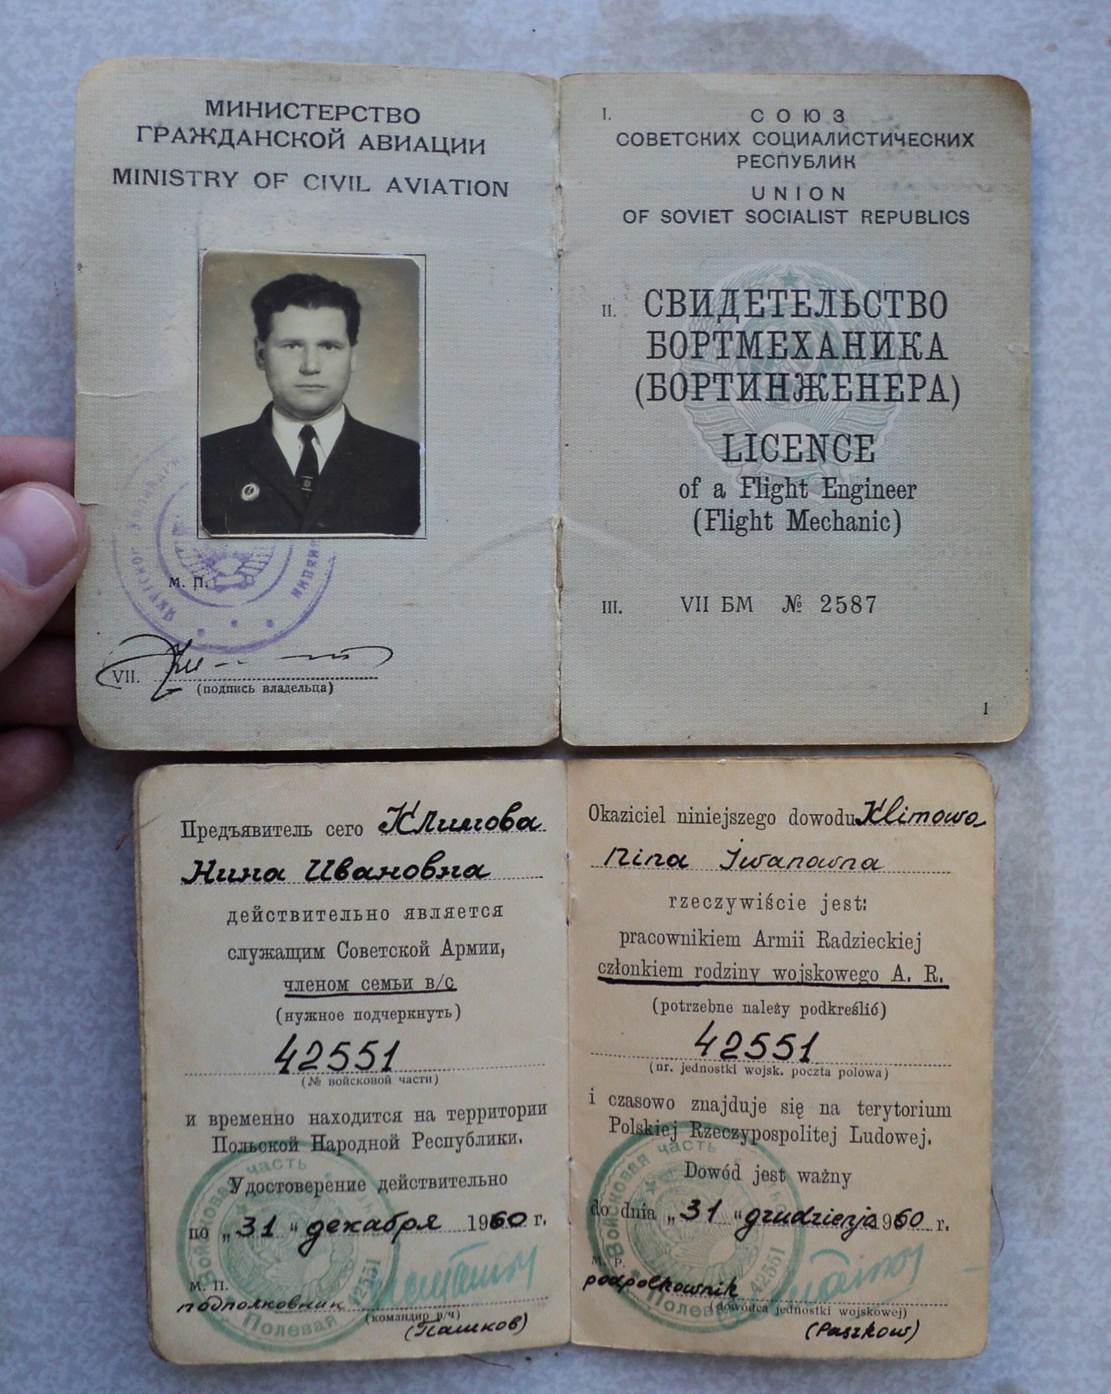 МИНИСТЕРСТВО
ГРАЖДАНСКОЙ АВИАЦИИ
MINISTRY OF CIVIL AVIATION
М. П.
VII.
(подпись владельца)
I.
СОЮЗ
СОВЕТСКИХ СОЦИАЛИСТИЧЕСКИХ
РЕСПУБЛИК
UNION
OF SOVIET SOCIALIST REPUBLICS
II.
СВИДЕТЕЛЬСТВО
БОРТМЕХАНИКА
(БОРТИНЖЕНЕРА)
LICENCE
of a Flight Engineer
(Flight Mechanic)
III. VII БМ № 2587
1
Предъявитель сего Климова
Нина Ивановна
действительно является
служащим Советской Армии,
членом семьи в/с
(нужное подчеркнуть)
42551
(№ войсковой части)
и временно находится на территории
Польской Народной Республики.
Удостоверение действительно
по „31" декабря 1960 г.
М. П.
подполковник
(командир в/ч)
(Пашков)
Войсковая часть
42551
Полевая
Okaziciel niniejszego dowodu Klimowa
Nina Iwanowna
rzeczywiście jest:
pracownikiem Armii Radzieckiej
członkiem rodziny wojskowego A. R.
(potrzebne należy podkreślić)
42551
(nr. jednostki wojsk. poczta polowa)
i czasowo znajduje się na terytorium
Polskiej Rzeczypospolitej Ludowej.
Dowód jest ważny
do dnia „31" grudzienja 1960 r.
M. P.
podpolkownik
(dowódca jednostki wojskowej)
(Paszkow)
Войсковая часть
42551
Полевая